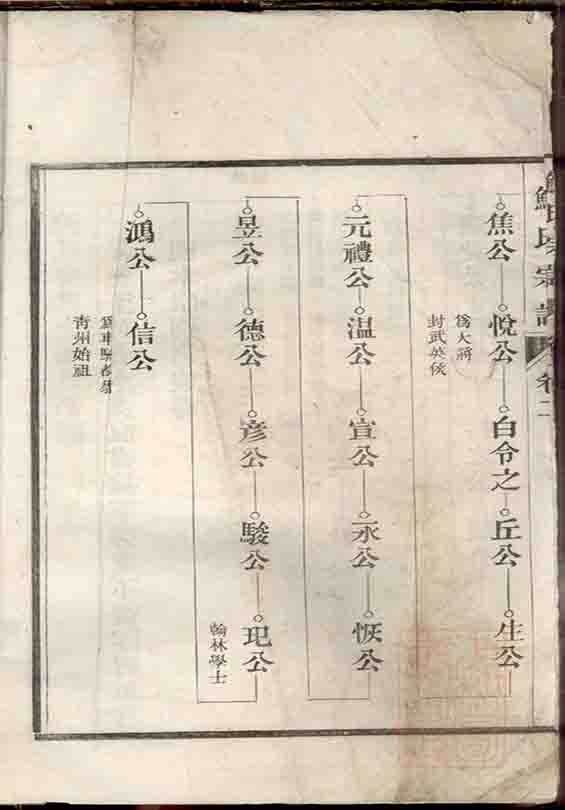 氏宗譜 卷二
焦公 悅公 白令之 丘公 生公
為大將
封武英侯
元禮公 温公 宣公 永公 恢公
昱公 德公 彥公 駿公 玘公
翰林學士
鴻公 信公
青州始祖